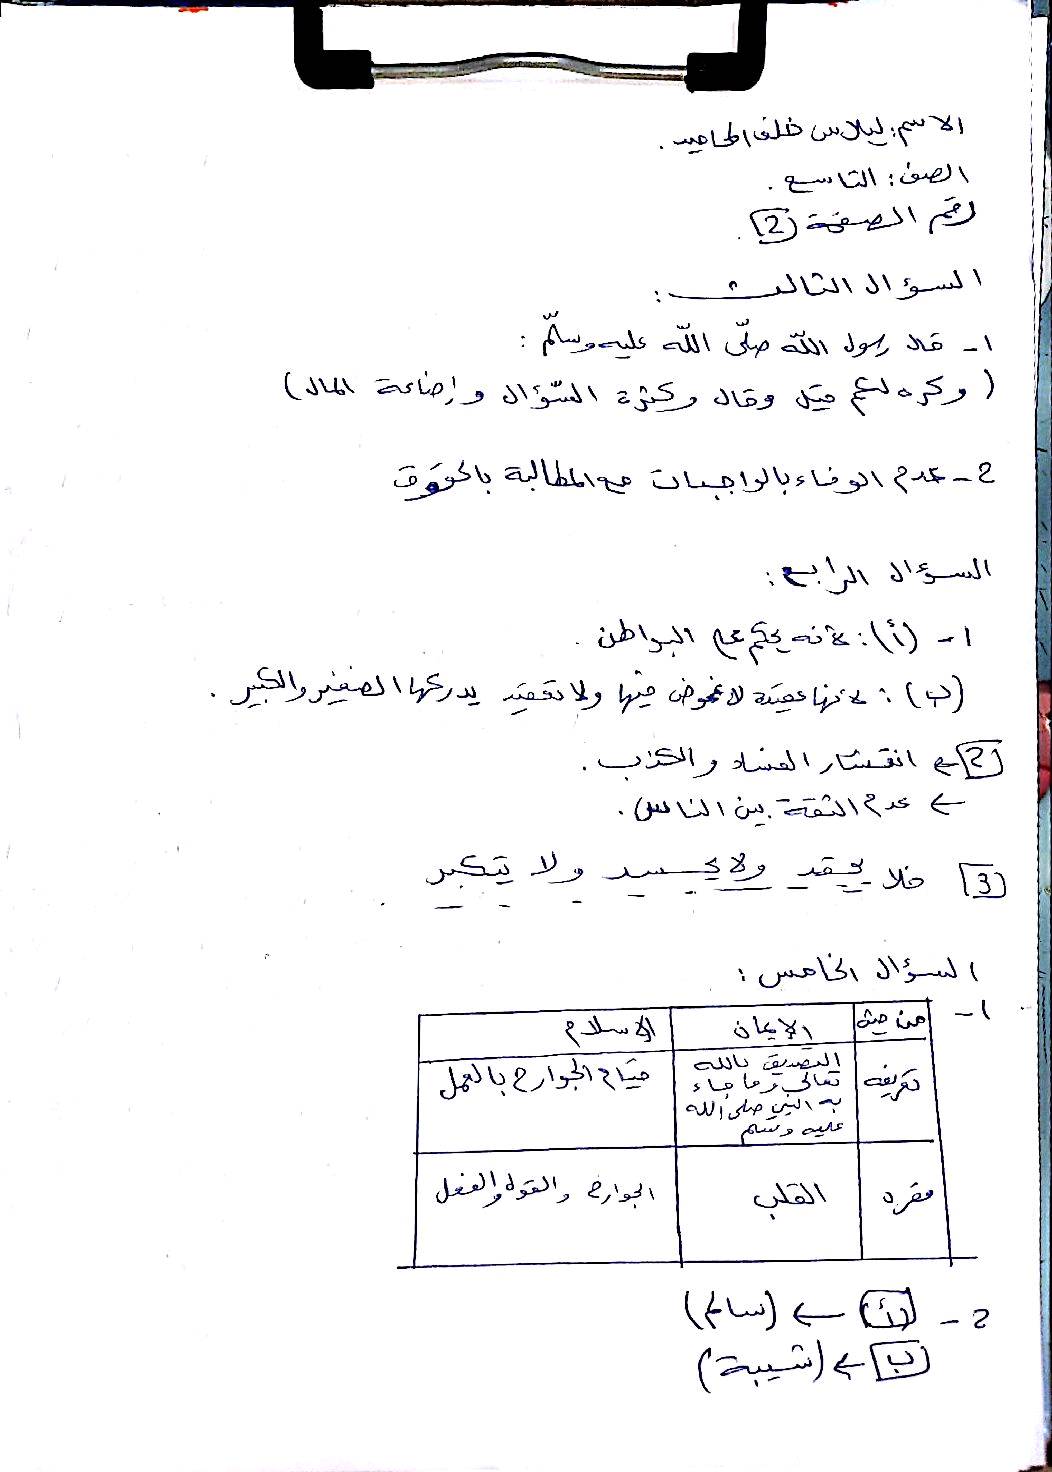 الاسم: ليلاس خلف المحاميد.
الصف: التاسع.
رقم الصفحة 2.
السؤال الثالث:
1- قال رسول اللّه صلّى اللّه عليه وسلّم:
(وكره لكم قيل وقال وكثرة السّؤال وإضاعة المال)
2- عدم الوفاء بالواجبات مع المطالبة بالحقوق
السؤال الرابع:
1- (أ): لأنه يحكم على البواطن.
(ب): لأنها عقيدة لا غموض فيها ولا تعقيد يدركها الصغير والكبير.
2 ← انتشار الفساد والكذب.
← عدم الثقة بين الناس.
3 فلا يحقد ولا يحسد ولا يتكبر.
السؤال الخامس:
1-
من حيث الإيمان الاسلام
تعريفه التصديق بالله تعالى وما جاء به النبي صلى الله عليه وسلم قيام الجوارح بالعمل
مقره القلب الجوارح والقول والفعل
2- أ ← (سالم)
ب ← (شيبة)